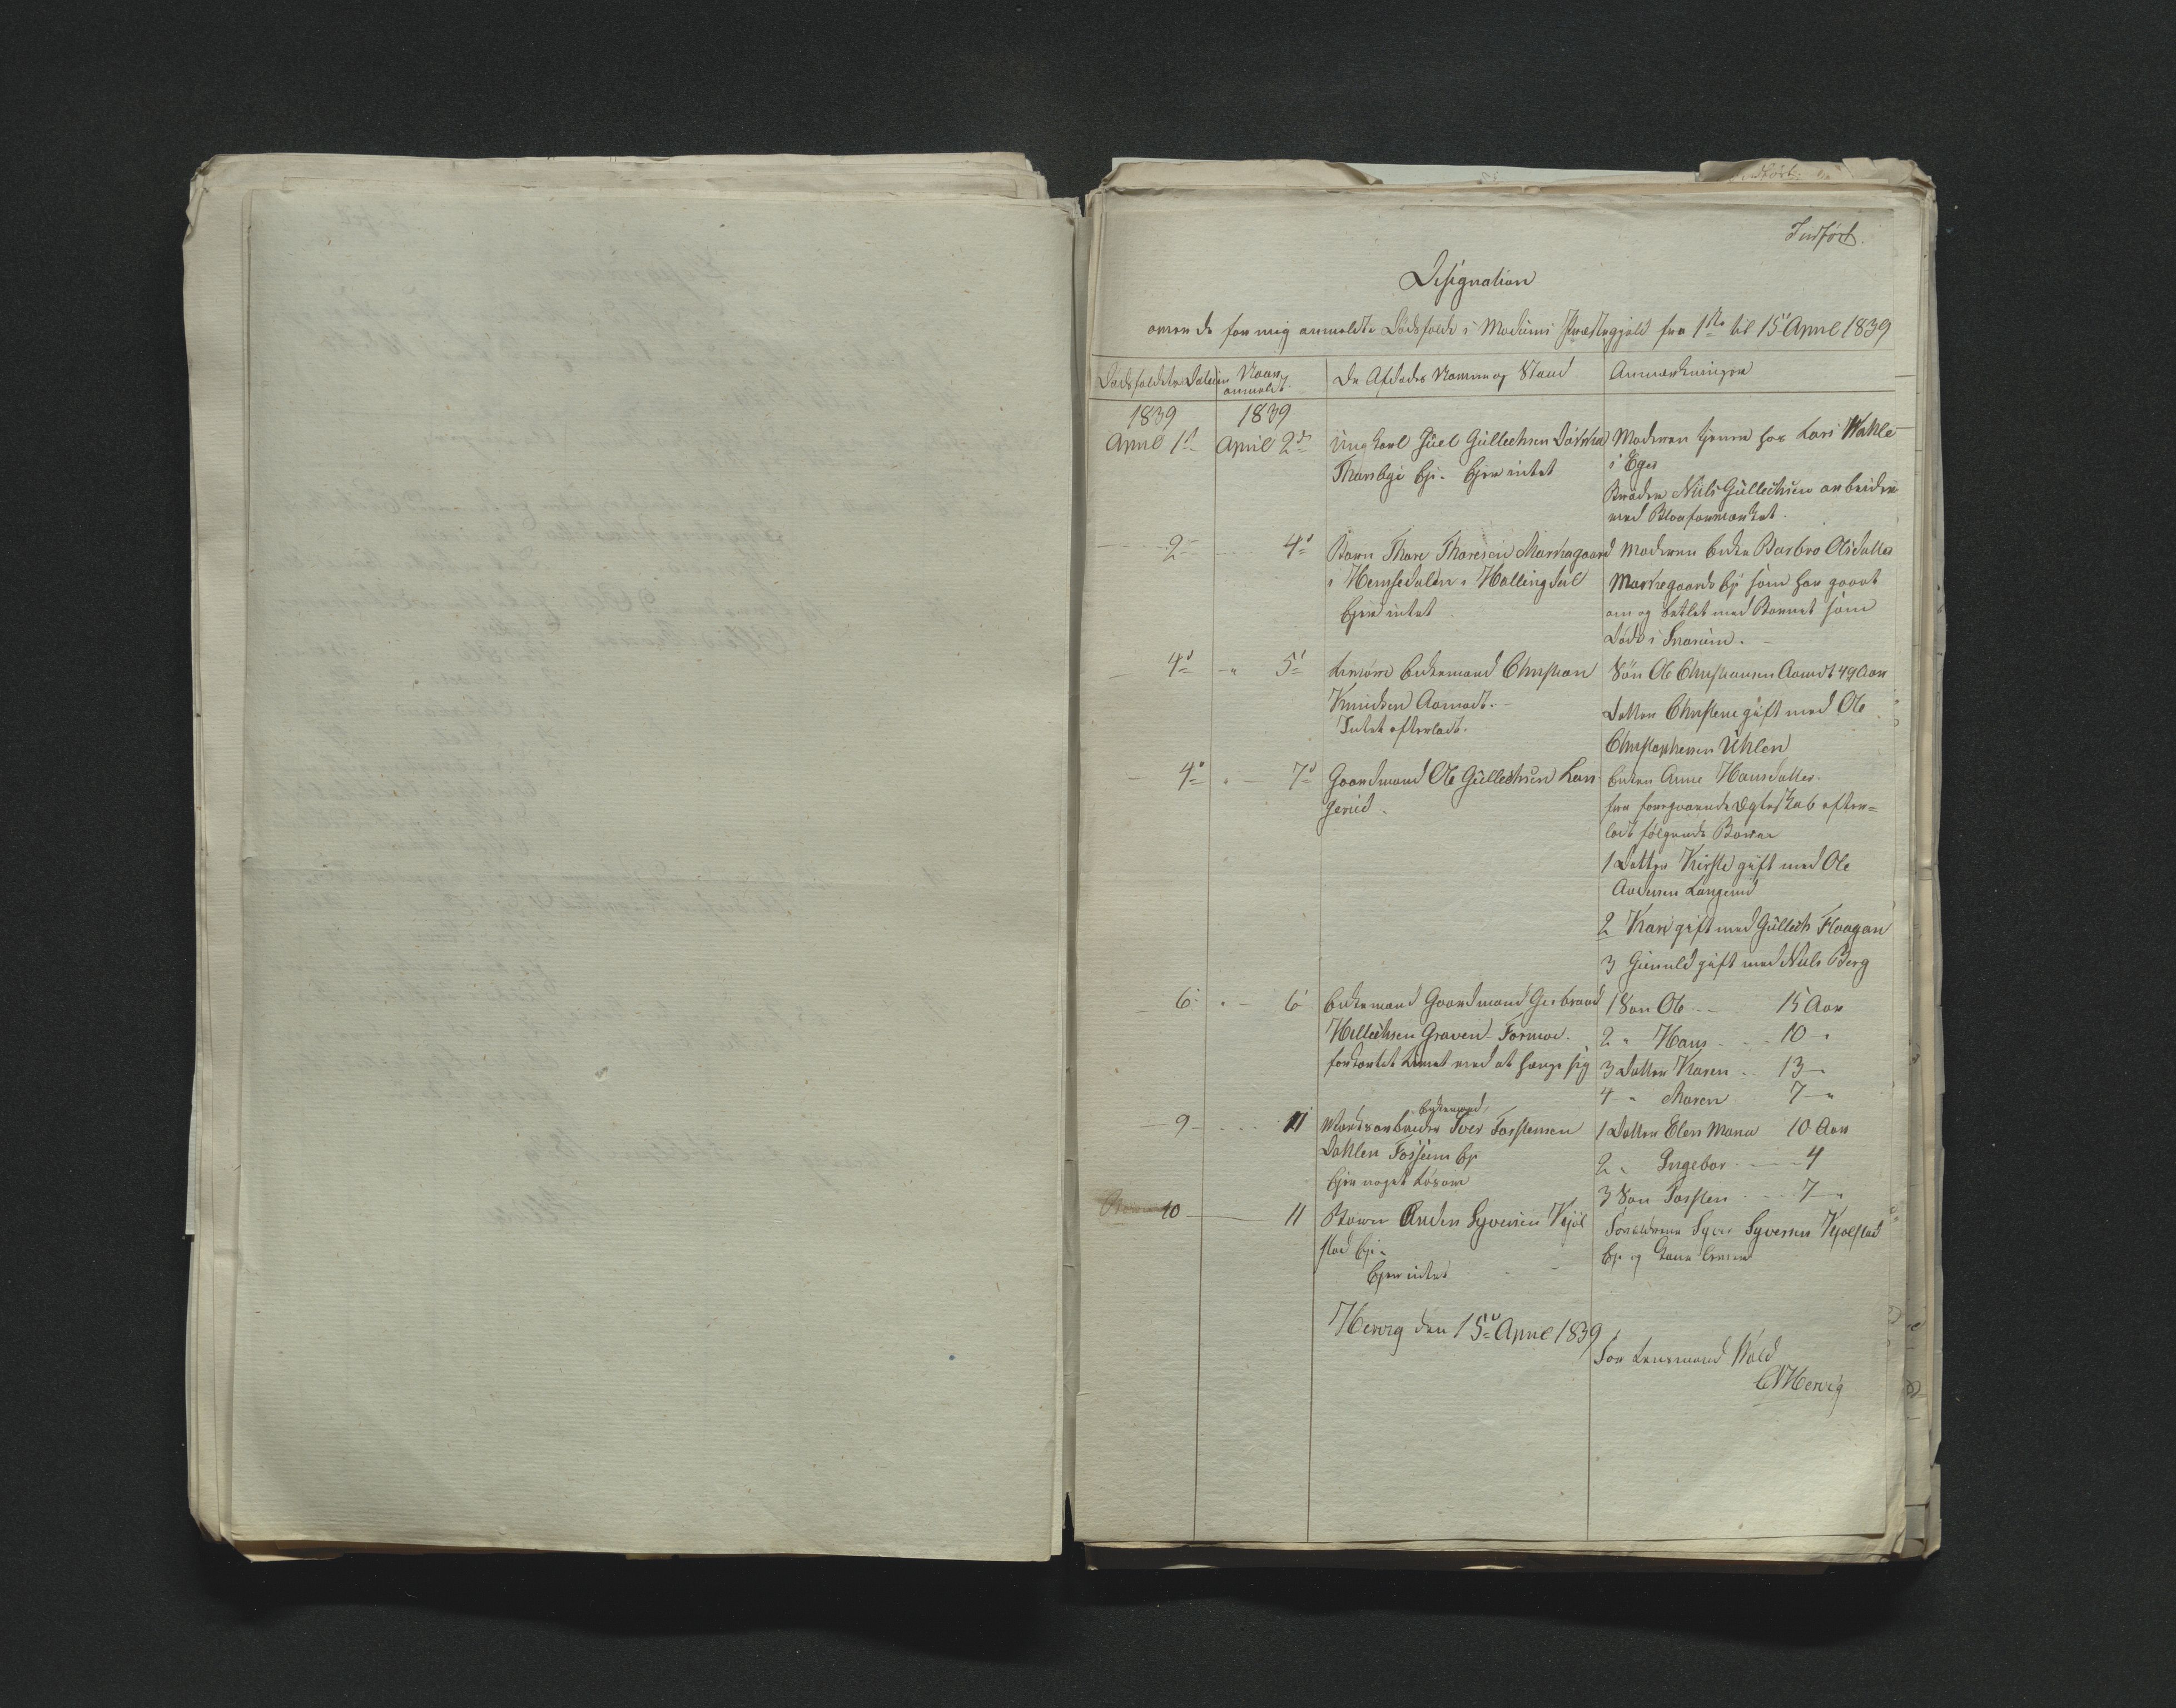 Indført.
Designation
over de for mig anmeldte Dødsfalde i Modums Præstegjeld fra 1ste til 15 April 1839
Dødsfaldets Datum
Naar anmeldt.
De Afdødes Navne og Stand
Anmærkninger
1839 1839
April 1st April 2den Ungkarl Juel Gullechsen
Thorsbye Ej. Ejer intet
Moderen tjener hos Lars Wahle
i Eger
Broder Niels Gullechsen arbeider
ved Blaafarveværket.
2 4d Barn Thore Thoresen Markegaard
i Hemsedalen i Hallingdal
Ejer intet
Moderen Enke Barbro Olsdatter
Markegaards Ej som har gaaet
om og betlet med Barnet som
døde i Snarum.
4d " 5d Lem Enkemand Christian
Knudsen Aamodt.
Intet efterladt.
Søn Ole Christiansen Aamodt 49 Aar
Datter Christene gift med Ole
Christophersen Uhlen
4d " 7d Gaardmand Ole Gullechsen Lan
gerud.
Enken Anne Hansdatter.
fra foregaaende Ægteskab efter=
ladt følgende Børn
1 Datter Kirsti gift med Ole
Andersen Langerud
2 Kari gift med Gullech Flaagan
3 Gunild gift med Niels Berg
6 " 6 Enkemand Gaardmand Gulbrand
Hellechsen Graven Formoe.
forkortet Livet ved at hænge sig
1 Søn Ole 15 Aar
2 " Hans 10 "
3 Datter Karen 13 "
4 " Maren 7 "
9 11 Enkemand
Værksarbeider Iver Torstensen
Dahlen Fossum Ej
Ejer noget Løsøre
1 Datter Elen Maria 10 Aar
2 " Ingebor 4
3 Søn Torsten 7 "
10 11 Barn Anders Syversen Kjøl
stad Ej.
Ejer intet
Forældrene Syver Syversen Kjølstad
Ej og Kone
Hervig den 15d April 1839
For Lensmand Wold
C Hervig